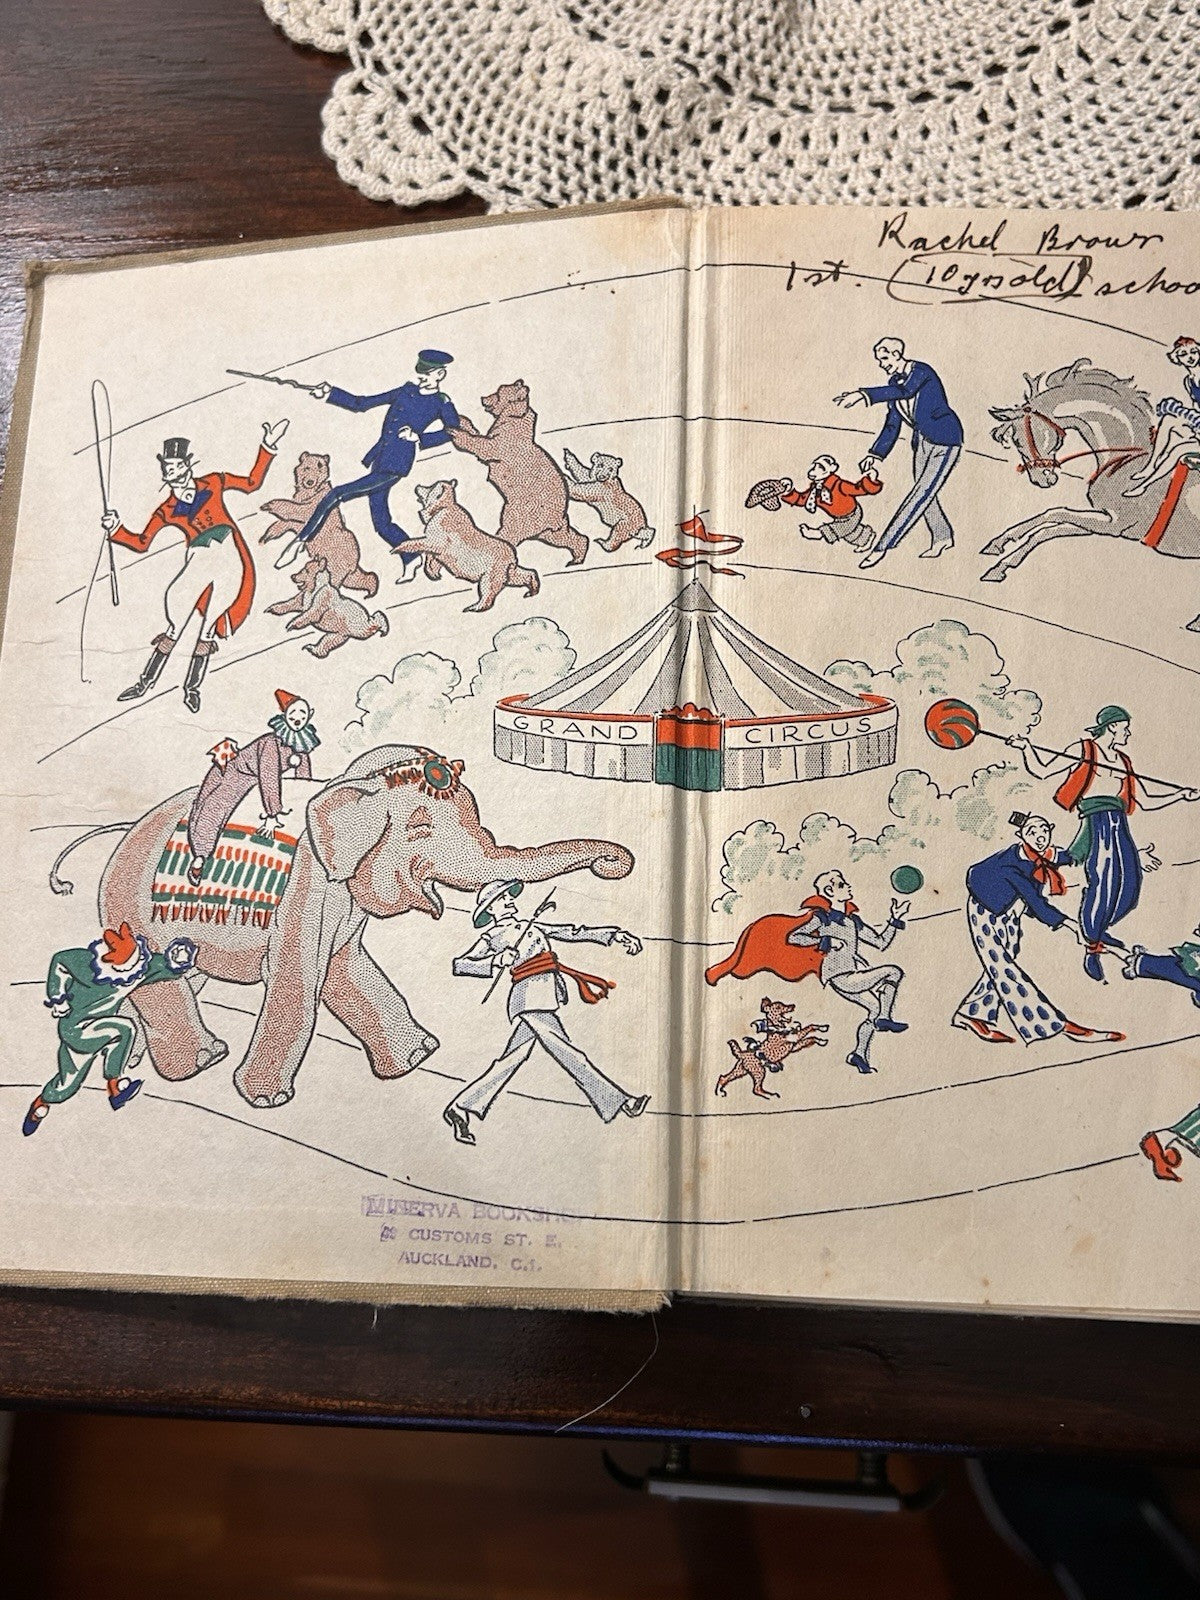 Rachel Brown
1st. (10 yrs old) schoo
GRAND CIRCUS
MINERVA BOOKSHO
CUSTOMS ST. E.
AUCKLAND, C.1.